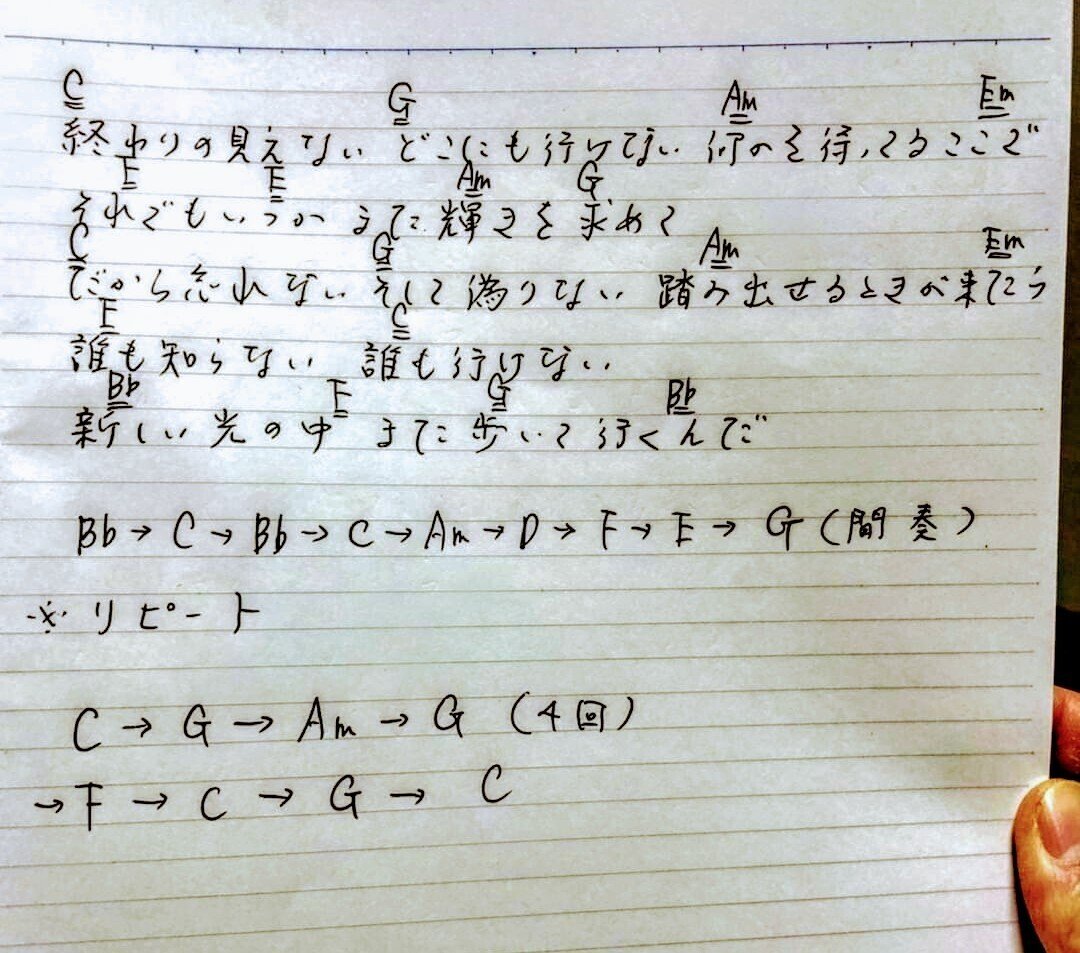 C G Am Em
終わりの見えない どこにも行けない 何かを待ってるここで
F E Am G
それでもいつか また輝きを求めて
C G Am Em
だから忘れない そして偽りない 踏み出せるときが来たら
F C
誰も知らない 誰も行けない
Bb F G Bb
新しい光の中 また歩いて行くんだ
Bb→C→Bb→C→Am→D→F→E→G(間奏)
※リピート
C→G→Am→G(4回)
→F→C→G→C